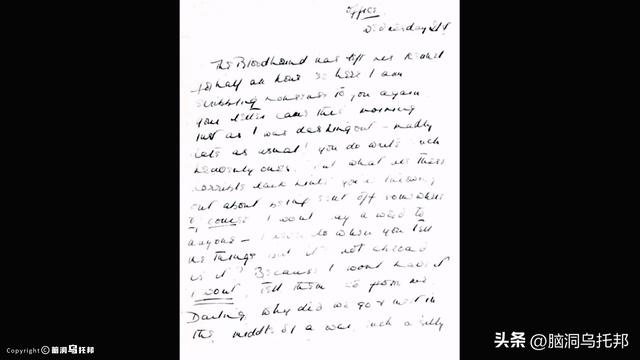 office
Wednesday 21st
The Bloodhound has left his kennel
for half an hour so here I am
scribbling nonsense to you again
your letter came this morning
just as I was dashing out - madly
late as usual! You do write such
heavenly ones. But what are these
horrible dark hints you're throwing
out about being sent off somewhere
of course I won't say a word to
anyone - I never do when you tell
me things but it's not abroad
is it? Because I won't have it
I won't, tell them so from me
Darling, why did we go & meet in
the middle of a war, such a silly
Copyright © 脑洞乌托邦
头条 @脑洞乌托邦